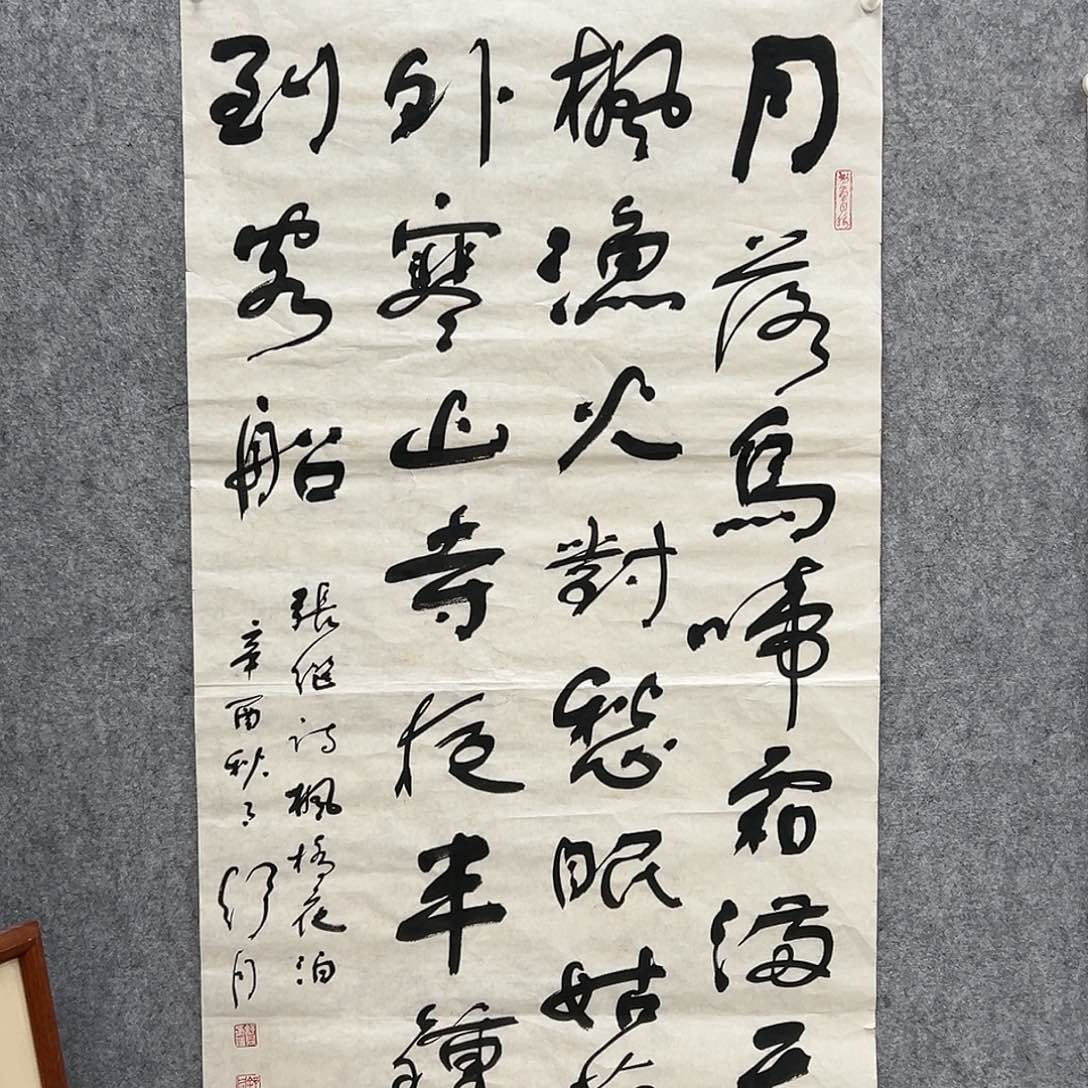 月落烏啼霜滿天
楓漁火對愁眠姑
外寒山寺夜半鐘
到客船
張继诗楓橋夜泊
辛酉秋